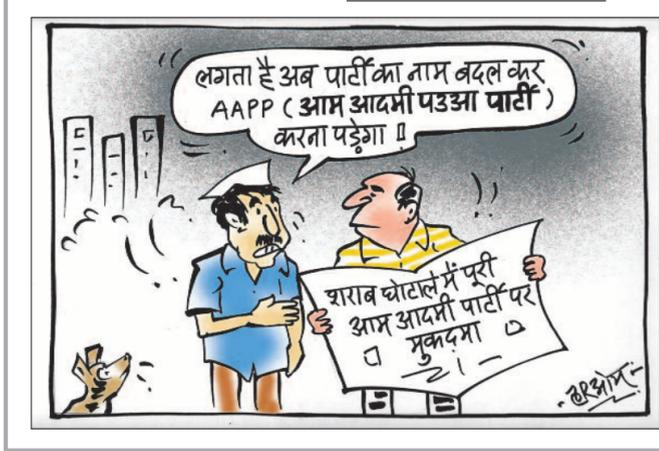 लगता है अब पार्टी का नाम बदल कर
AAPP (आम आदमी पउआ पार्टी)
करना पड़ेगा !
शराब घोटाले में पूरी
आम आदमी पार्टी पर
मुकदमा
हरओम